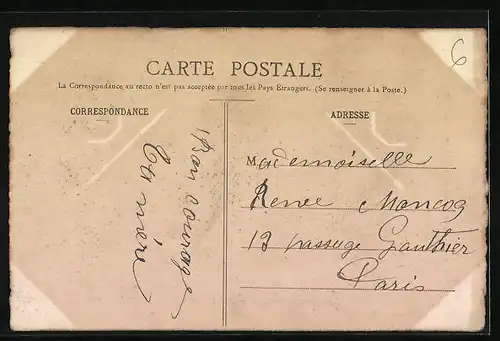 6
CARTE POSTALE
La Correspondance au recto n'est pas acceptée par tous les Pays Etrangers. (Se renseigner à la Poste.)
CORRESPONDANCE
Bon courage
Ta mère
ADRESSE
Mademoiselle
Renée
13 passage Gauthier
Paris